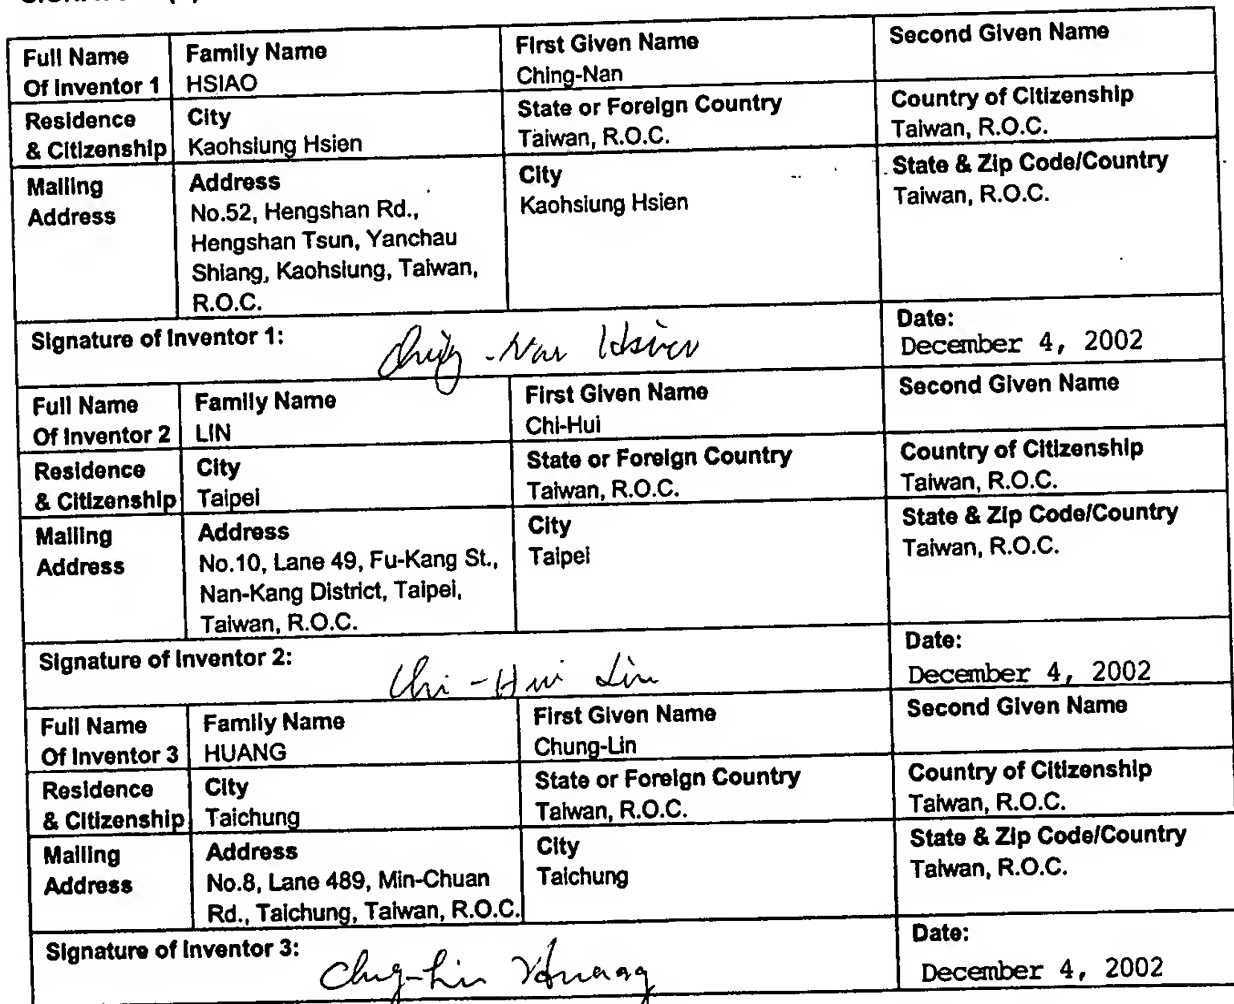 Full Name
Of Inventor 1
Family Name
HSIAO
First Given Name
Ching-Nan
Second Given Name
Residence
& Citizenship
City
Kaohsiung Hsien
State or Foreign Country
Taiwan, R.O.C.
Country of Citizenship
Taiwan, R.O.C.
Mailing
Address
Address
No.52, Hengshan Rd.,
Hengshan Tsun, Yanchau
Shiang, Kaohsiung, Taiwan,
R.O.C.
City
Kaohsiung Hsien
State & Zip Code/Country
Taiwan, R.O.C.
Signature of Inventor 1:
Ching-Nan Hsiao
Date:
December 4, 2002
Full Name
Of Inventor 2
Family Name
LIN
First Given Name
Chi-Hui
Second Given Name
Residence
& Citizenship
City
Taipei
State or Foreign Country
Taiwan, R.O.C.
Country of Citizenship
Taiwan, R.O.C.
Mailing
Address
Address
No.10, Lane 49, Fu-Kang St.,
Nan-Kang District, Taipei,
Taiwan, R.O.C.
City
Taipei
State & Zip Code/Country
Taiwan, R.O.C.
Signature of Inventor 2:
Chi-Hui Lin
Date:
December 4, 2002
Full Name
Of Inventor 3
Family Name
HUANG
First Given Name
Chung-Lin
Second Given Name
Residence
& Citizenship
City
Taichung
State or Foreign Country
Taiwan, R.O.C.
Country of Citizenship
Taiwan, R.O.C.
Mailing
Address
Address
No.8, Lane 489, Min-Chuan
Rd., Taichung, Taiwan, R.O.C.
City
Taichung
State & Zip Code/Country
Taiwan, R.O.C.
Signature of Inventor 3:
Chung-Lin Huang
Date:
December 4, 2002